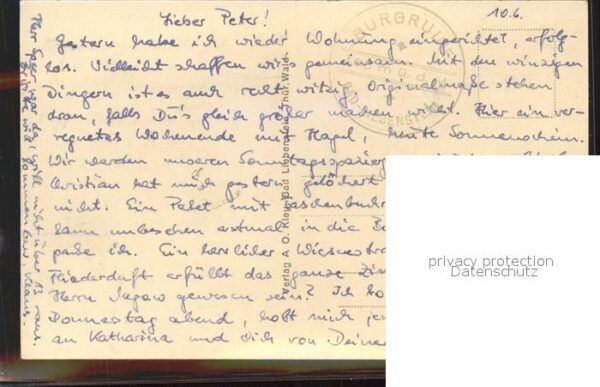 10.6.
Lieber Peter!
Gestern habe ich wieder Wohnung eingerichtet, erfolg-
los. Vielleicht schaffen wir's gemeinsam. Mit den winzigen
Dingern ist es auch recht witzig. Originalmaße stehen
dran, falls Du's gleich größer machen willst. Hier ein ver-
regnetes Wochenende mit Hagel, heute Sonnenschein.
Wir werden unseren Sonntagsspazier
Christian hat mich gestern gelöchert
nicht. Ein Paket mit Taschenbüchern
kann unbesehen erstmal in die
packe ich. Ein herrlicher Wiesenstrauß
Fliederduft erfüllt das ganze Zim
Herrn gewesen sein? Ich
Donnerstag abend, holt mich
an Katharina und Dich von Deine
Herr war da, will nicht über 13 raus.
Dritte will kommen
BURGRUINE
Verlag A. O. Klett, Bad Liebenstein, Thür. Wald.
privacy protection
Datenschutz